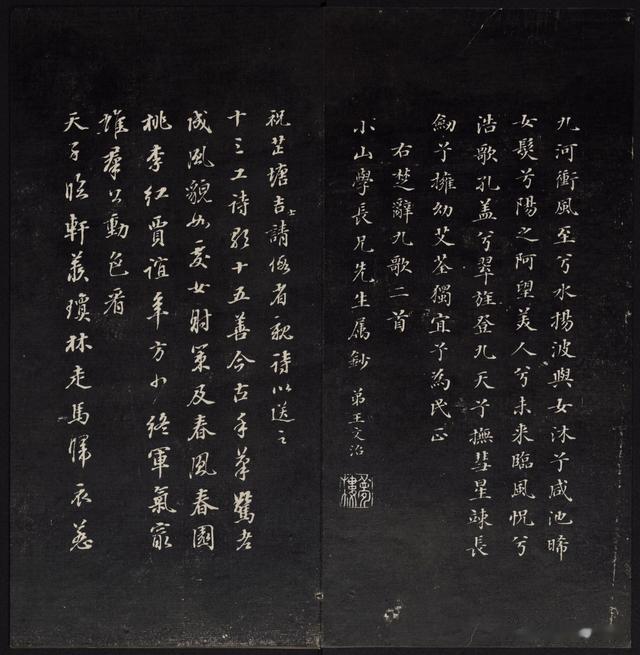 九河衝風至兮水揚波與女沐兮咸池晞
女髮兮陽之阿望美人兮未来臨風怳兮
浩歌孔盖兮翠旌登九天兮撫彗星竦長
劍兮擁幼艾荃獨宜兮為民正
右楚辭九歌二首
小山學長兄先生属鈔 弟王文治
夢樓
祝芷塘吉士請假省親詩以送之
十三工詩歌十五善今古手筆驚老
成風貌如處女射策及春風春園
桃李紅賈誼年方少終軍氣最
雄羣公動色看
天子臨軒羨瓊林走馬歸衣惹